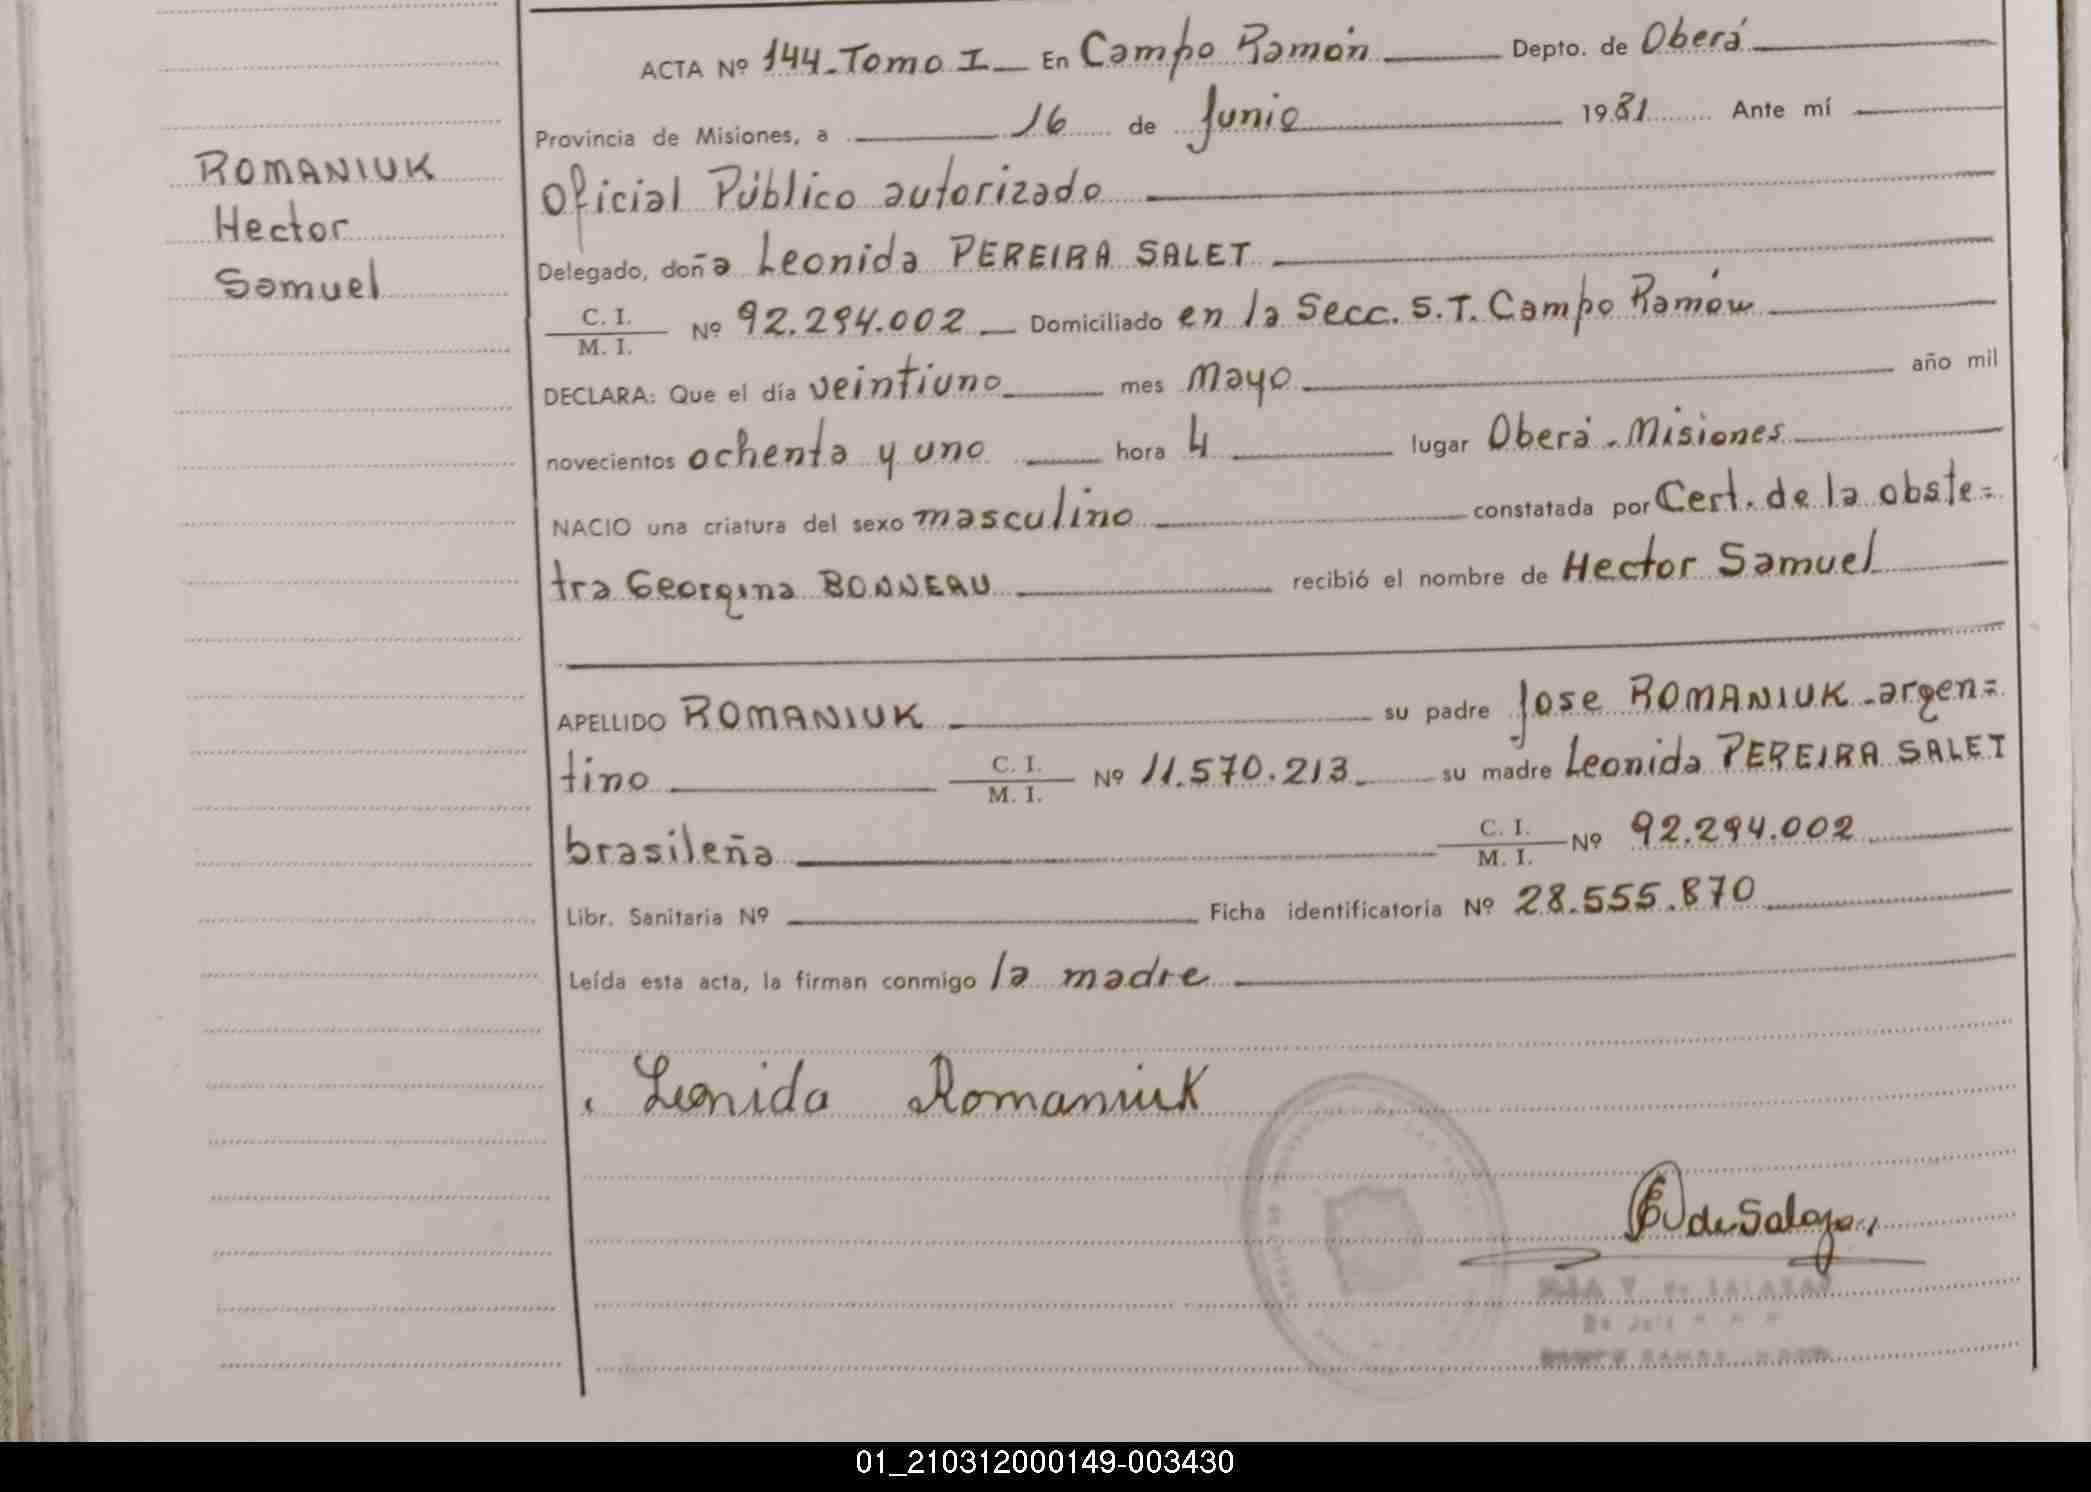 ACTA Nº 144-Tomo I En Campo Ramón Depto. de Oberá
Provincia de Misiones, a 16 de Junio 1981 Ante mí
Oficial Público autorizado
Delegado, doña Leonida PEREIRA SALET
C. I.
M. I. Nº 92.294.002 Domiciliado en la Secc. S.T. Campo Ramón
DECLARA: Que el día veintiuno mes mayo año mil
novecientos ochenta y uno hora 4 lugar Oberá - Misiones
NACIO una criatura del sexo masculino constatada por Cert. de la obste=
tra Georgina BONNEAU recibió el nombre de Hector Samuel
ROMANIUK
Hector
Samuel
APELLIDO ROMANIUK su padre Jose ROMANIUK - argen=
tino C. I.
M. I. Nº 11.570.213 su madre Leonida PEREIRA SALET
brasileña C. I.
M. I. Nº 92.294.002
Libr. Sanitaria Nº Ficha identificatoria Nº 28.555.870
Leída esta acta, la firman conmigo la madre
Leonida Romaniuk
de Salazar
01_210312000149-003430